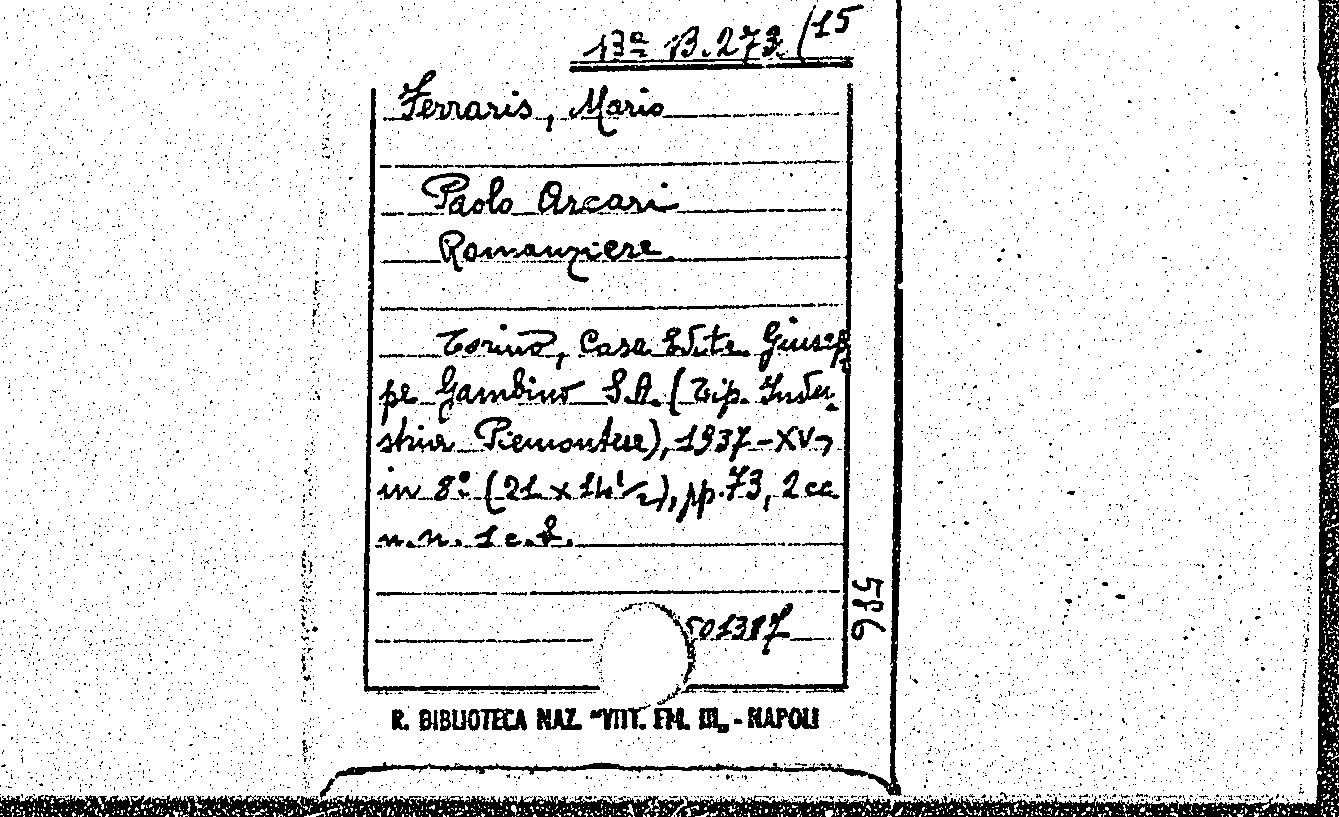 13ª B.273 (15
Ferraris, Mario
Paolo Arcari
Romanziere.
Torino, Casa Edit. Giusep
pe Gambino S.A. (Tip. Indu-
strie Piemontese), 1937-XV,
in 8º (21 x 14 1/2), pp. 73, 2 cc.
n.n. 1 c.b.
501387
586
R. BIBLIOTECA NAZ. "VITT. EM. III„ - NAPOLI